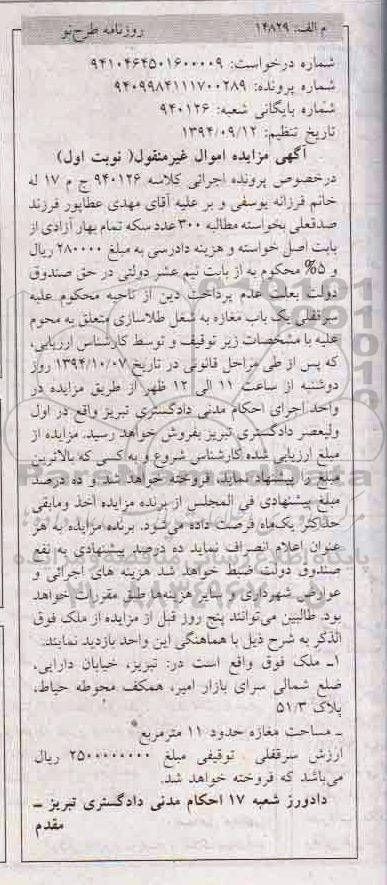 م الف: ۱۴۸۲۹ روزنامه طرح‌نو
شماره درخواست: ۹۴۱۰۴۶۴۵۰۱۶۰۰۰۰۹
شماره پرونده: ۹۴۰۹۹۸۴۱۱۱۷۰۰۲۸۹
شماره بایگانی شعبه: ۹۴۰۱۲۶
تاریخ تنظیم: ۱۳۹۴/۰۹/۱۲
آگهی مزایده اموال غیرمنقول( نوبت اول)
درخصوص پرونده اجرائی کلاسه ۹۴۰۱۲۶ ج م ۱۷ له
خانم فرزانه یوسفی و بر علیه آقای مهدی عطاپور فرزند
صدقعلی بخواسته مطالبه ۳۰۰عدد سکه تمام بهار آزادی از
بابت اصل خواسته و هزینه دادرسی به مبلغ ۲۸۰۰۰۰ ریال
و ۵% محکوم به از بابت نیم عشر دولتی در حق صندوق
دولت بعلت عدم پرداخت دین از ناحیه محکوم علیه
سرقفلی یک باب مغازه به شغل طلاسازی متعلق به محوم
علیه با مشخصات زیر توقیف و توسط کارشناس ارزیابی،
که پس از طی مراحل قانونی در تاریخ ۱۳۹۴/۱۰/۰۷ روز
دوشنبه از ساعت ۱۱ الی ۱۲ ظهر از طریق مزایده در
واحد اجرای احکام مدنی دادگستری تبریز واقع در اول
ولیعصر دادگستری تبریز بفروش خواهد رسید. مزایده از
مبلغ ارزیابی شده کارشناس شروع و به کسی که بالاترین
مبلغ را پیشنهاد نماید، فروخته خواهد شد و ده درصد
مبلغ پیشنهادی فی المجلس از برنده مزایده اخذ ومابقی
حداکثر یک‌ماه فرصت داده می‌شود. برنده مزایده به هر
عنوان اعلام انصراف نماید ده درصد پیشنهادی به نفع
صندوق دولت ضبط خواهد شد هزینه های اجرائی و
عوارض شهرداری و سایر هزینه‌ها طبق مقررات خواهد
بود. طالبین می‌توانند پنج روز قبل از مزایده از ملک فوق
الذکر به شرح ذیل با هماهنگی این واحد بازدید نمایند.
۱ـ ملک فوق واقع است در: تبریز، خیابان دارایی،
ضلع شمالی سرای بازار امیر، همکف محوطه حیاط،
پلاک ۵۱/۳
ـ مساحت مغازه حدود ۱۱ مترمربع
ارزش سرقفلی توقیفی مبلغ ۲۵۰۰۰۰۰۰۰۰ ریال
می‌باشد که فروخته خواهد شد.
دادورز شعبه ۱۷ احکام مدنی دادگستری تبریز ـ
مقدم